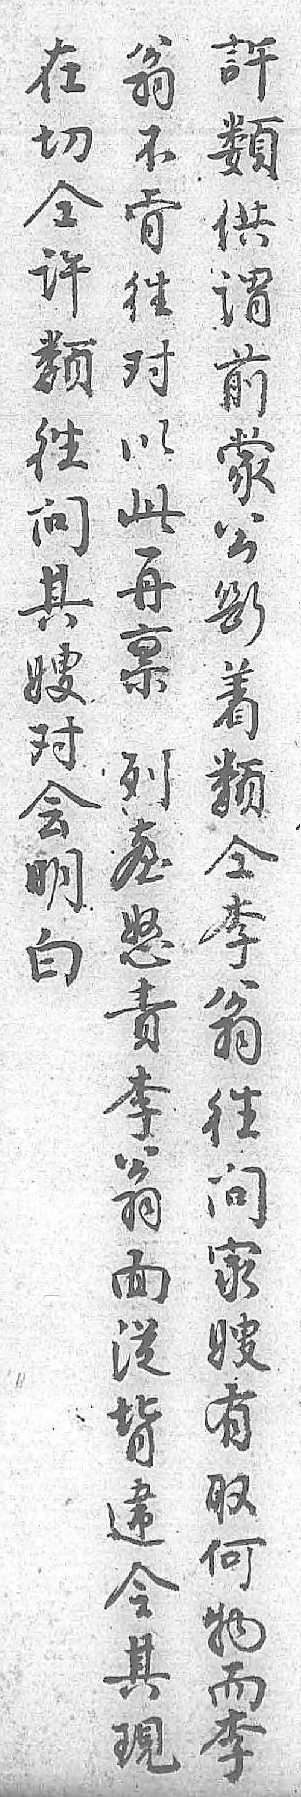 許類供谓前蒙公断着類仝李翁往问家嫂有取何物而李
翁不肯往对以此再禀 列台怒责李翁面從背違令其現
在切仝许類往问其嫂对会明白